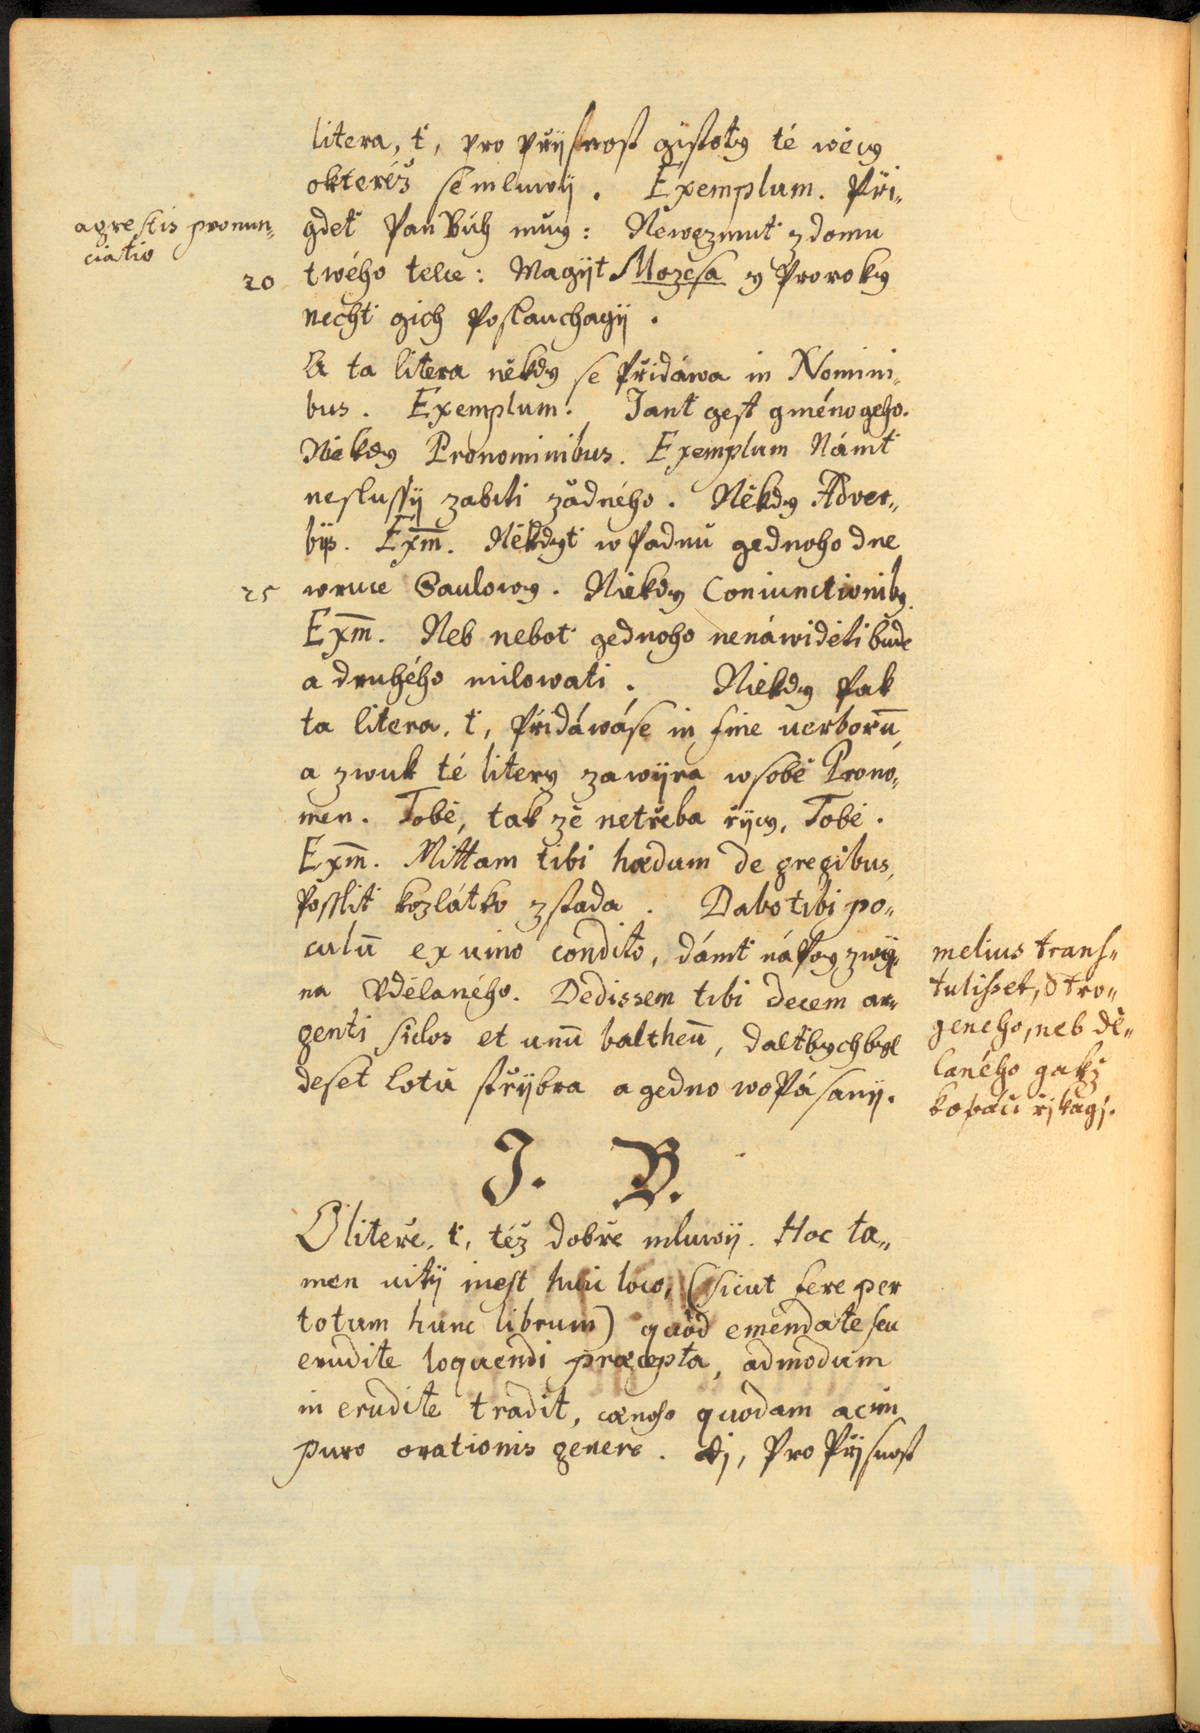 litera, ť, pro přijsnost gistoty té wěcy
okteréž semluwij. Exemplum. Při„
agrestis pronun„
ciatio
gdeť Pan Bůh můg: Newezmuť z domu
20
twého telce: Magijť Mozcsa y Proroky
nechť gich poslauchagij.
A ta litera někdy se přidáwa in Nomini„
bus. Exemplum. Janť gest gméno geho.
Niekdy Pronominibus. Exemplum Námť
neslussij zabiti žádného. Někdy Adver„
bijs. Exm̄. Někdyť wpadnu gednoho dne
25
wruce Saulowy. Niekdy Coniunctionibꝫ.
Exm̄. Neb neboť gednoho nenáwiděti bude
a druhého milowati. Niekdy pak
ta litera, ť, přidáwáse in fine uerborū,
a zwuk té litery zawijra w sobě Prono„
men. Tobě, tak že netřeba řijcy, Tobě.
Exm̄. Mittam tibi hædum de gregibus,
Possliť kozlátko z stada. Dabo tibi po„
culū ex uino condito, dámť nápog z wij„
na Vdělaného. Dedissem tibi decem ar„
genti siclos et unū baltheū, dalťbych byl
deset lotů střijbra a gedno wopásanij.
melius trans„
tulisset, Stro„
geneho, neb dě„
laného gakž
kopáči řjkagj.
J. B.
O liteře, ť, též dobře mluwij. Hoc ta„
men uitij inest huic loco, (sicut fere per
totum hunc librum) quòd emendate seu
erudite loquendi præcepta, admodum
in erudite tradit, cœnoso quodam ac im
puro orationis genere. Dj, Pro Přjsnost